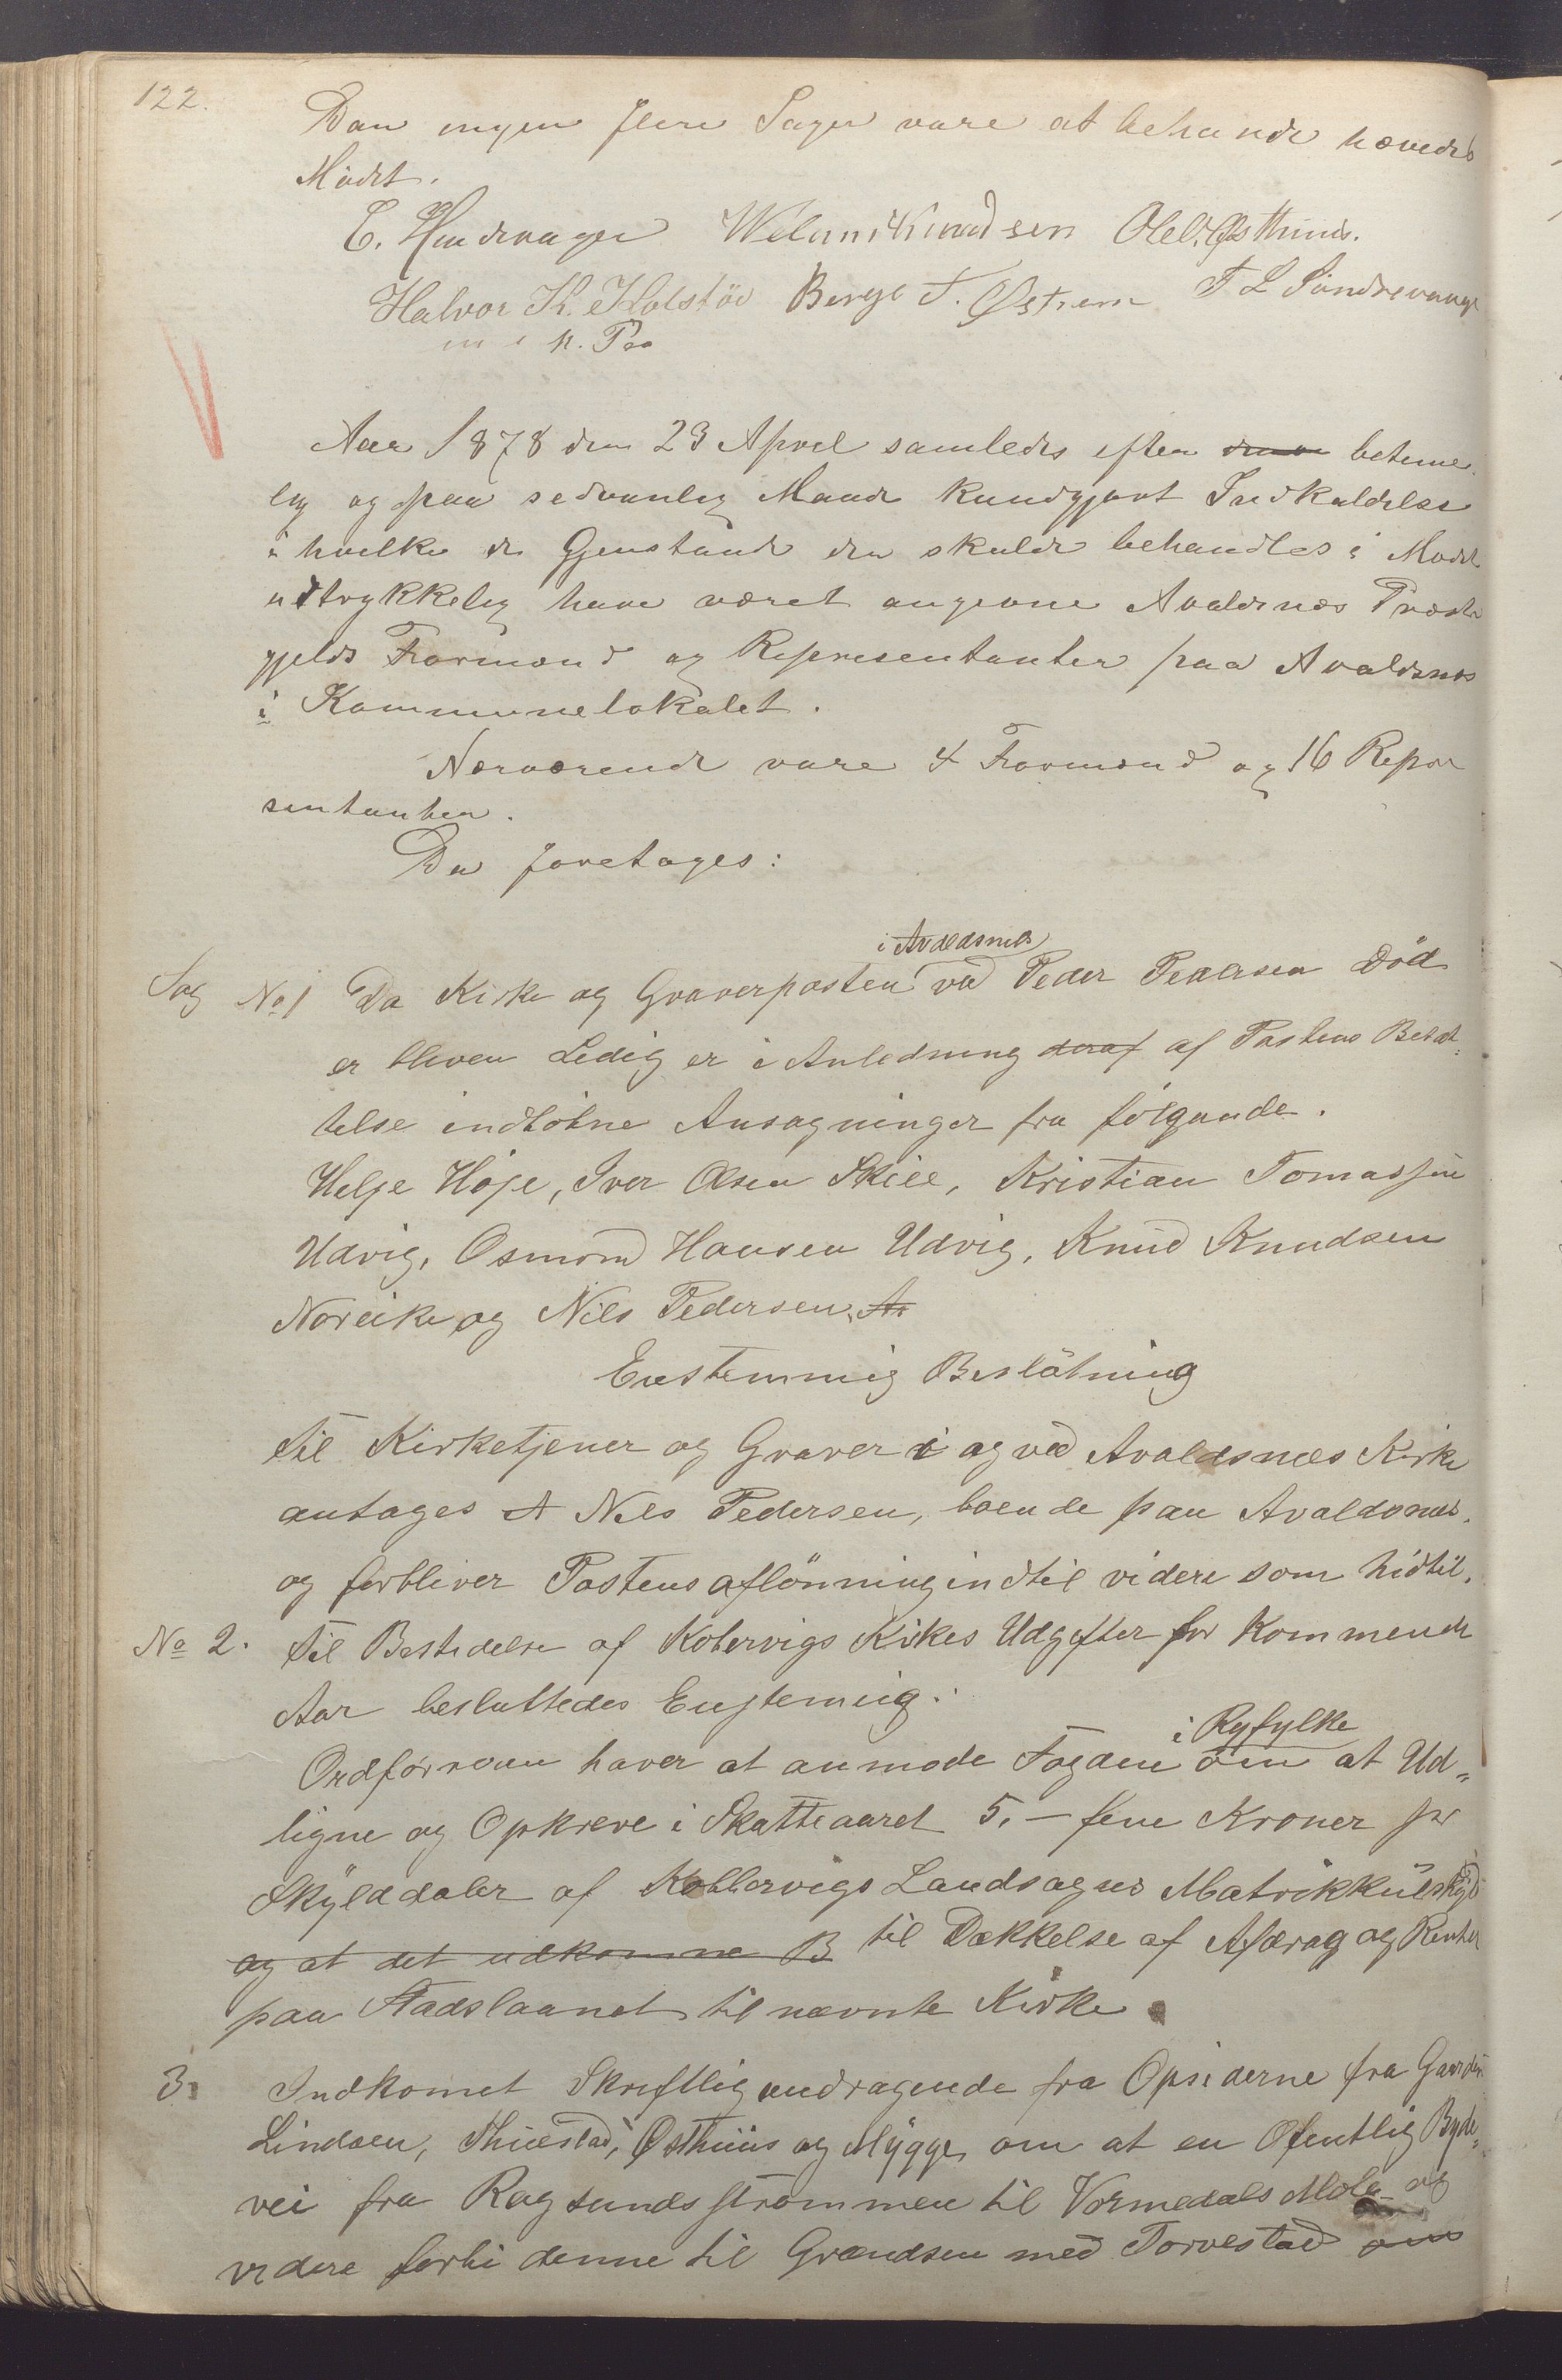 122.
Dan ingen flere Sager vare at behande hævedes
Mødet.
E. Hindevager Welum Knudsen Ole O. Østhuus.
Halvor K. Holstøe Berge T. Østrem T L Søndrevaage
m. P.
Aar 1878 den 23 April samledes efter betime
lig og paa sedvanlig Maade kundgjort Indkaldelse
i hvilke de Gjenstande der skulde behandles i Mødet
udtrykkelig have været angivne Avaldsnes Præste
gjelds Formænd og Representanter paa Avaldsnes
i Kommunelokalet.
Nærværende vare 4 Formænd og 16 Repre
sentanter.
Da foretages:
i Avaldsnæs
Sag No 1 Da Kirke og Graverposten ved Peder Pedersen Död
er bleven Ledig er i Anledning deraf af Postens Besæt-
telse indløbne Ansøgninger fra følgende.
Helje Höje, Iver Olsen Skiee, Kristian Tomassen
Udvig, Osmond Hansen Udvig, Knud Knudsen
Noreike og Nils Pedersen, Av
Enstemmig Beslutning
Til Kirketjener og Graver i og ved Avaldsnæs Kirke
antages A Nils Pedersen, boende paa Avaldsnæs,
og forbliver Postens aflönning indtil videre som hidtil.
No 2. Til Bestridelse af Kobervigs Kirkes Udgifter for Kommende
Aar besluttedes Enstemig:
i Ryfylke
Ordføreren haver at anmode Fogden om at Ud-
ligne og Opkreve i Skatteaaret 5. – fem Kroner pr
Skylddaler af Kobbervigs Landsogns Matrikkulskyld
og at det udkomne B til Dækkelse af Afdrag og Renter
paa Stadslaanet til nævnte Kirke.
3. Indkomet Skriftlig andragende fra Opsiderne fra Gaarden
Lindøen, Thuestad, Østhuus og Mygge, om at en Ofentlig Byde-
vei fra Ragsunds strømmen til Vormedals Mølle og
videre forbi denne til Grændsen med Torvestad om